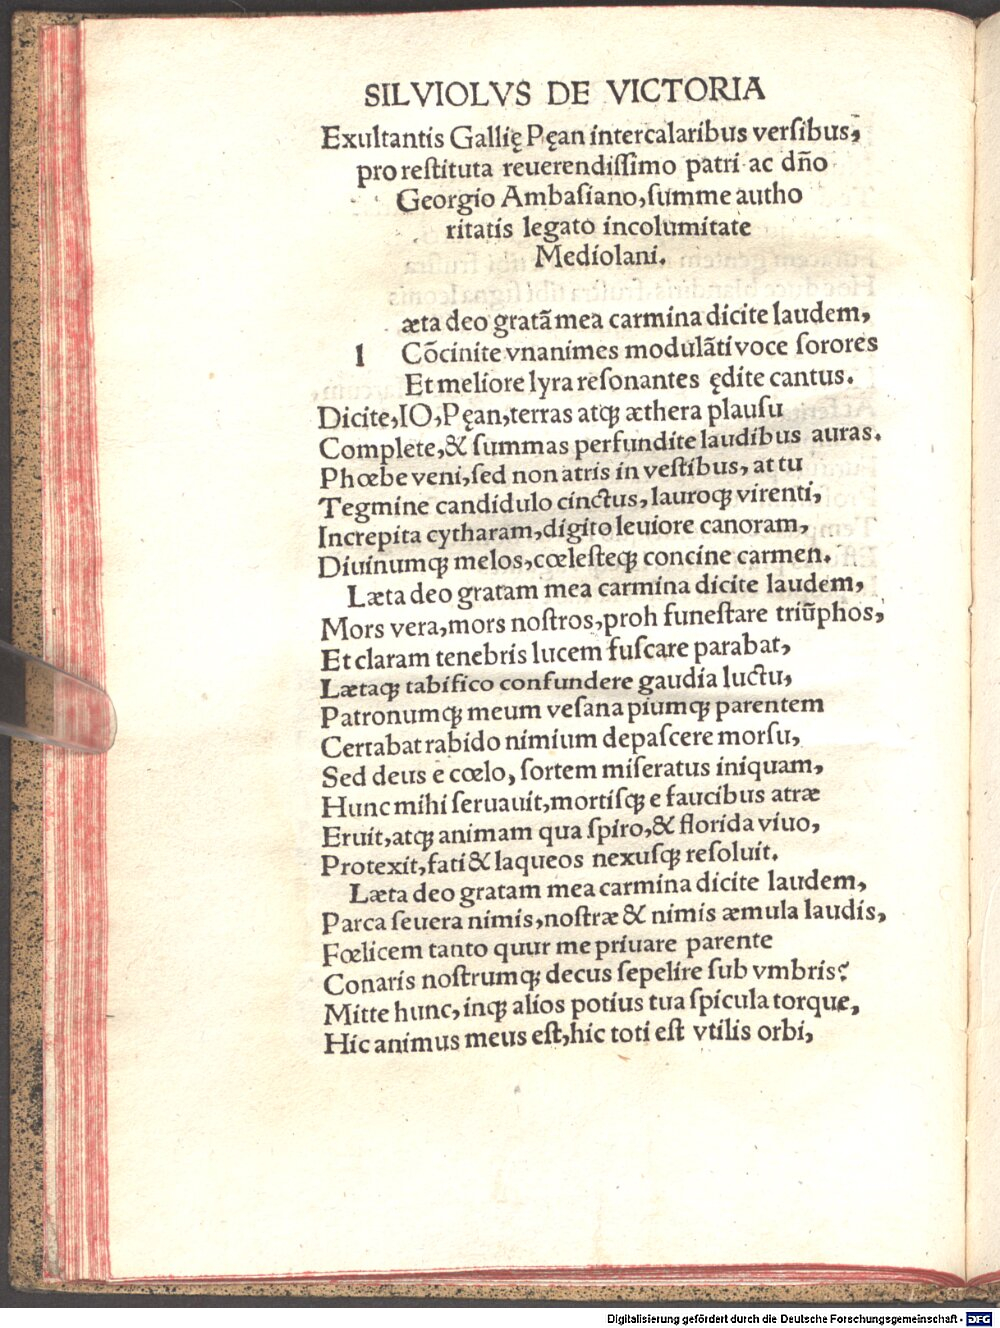 SILVIOLVS DE VICTORIA
Exultantis Gallię Pęan intercalaribus versibus,
pro restituta reuerendissimo patri ac dño
Georgio Ambasiano, summe autho
ritatis legato incolumitate
Mediolani.
æta deo gratã mea carmina dicite laudem,
l Cõcinite vnanimes modulãti voce sorores
Et meliore lyra resonantes ędite cantus.
Dicite, IO, Pęan, terras atqꝫ æthera plausu
Complete, & summas perfundite laudibus auras.
Phœbe veni, sed non atris in vestibus, at tu
Tegmine candidulo cinctus, lauroqꝫ virenti,
Increpita cytharam, digito leuiore canoram,
Diuinumqꝫ melos, cœlesteqꝫ concine carmen.
Læta deo gratam mea carmina dicite laudem,
Mors vera, mors nostros, proh funestare triũphos,
Et claram tenebris lucem fuscare parabat,
Lætaqꝫ tabifico confundere gaudia luctu,
Patronumqꝫ meum vesana piumqꝫ parentem
Certabat rabido nimium depascere morsu,
Sed deus e cœlo, sortem miseratus iniquam,
Hunc mihi seruauit, mortisqꝫ e faucibus atræ
Eruit, atqꝫ animam qua spiro, & florida viuo,
Protexit, fati & laqueos nexusqꝫ resoluit.
Læta deo gratam mea carmina dicite laudem,
Parca seuera nimis, nostræ & nimis æmula laudis,
Fœlicem tanto quur me priuare parente
Conaris nostrumqꝫ decus sepelire sub vmbris?
Mitte hunc, inqꝫ alios potius tua spicula torque,
Hic animus meus est, hic toti est vtilis orbi,
Digitalisierung gefördert durch die Deutsche Forschungsgemeinschaft - DFG